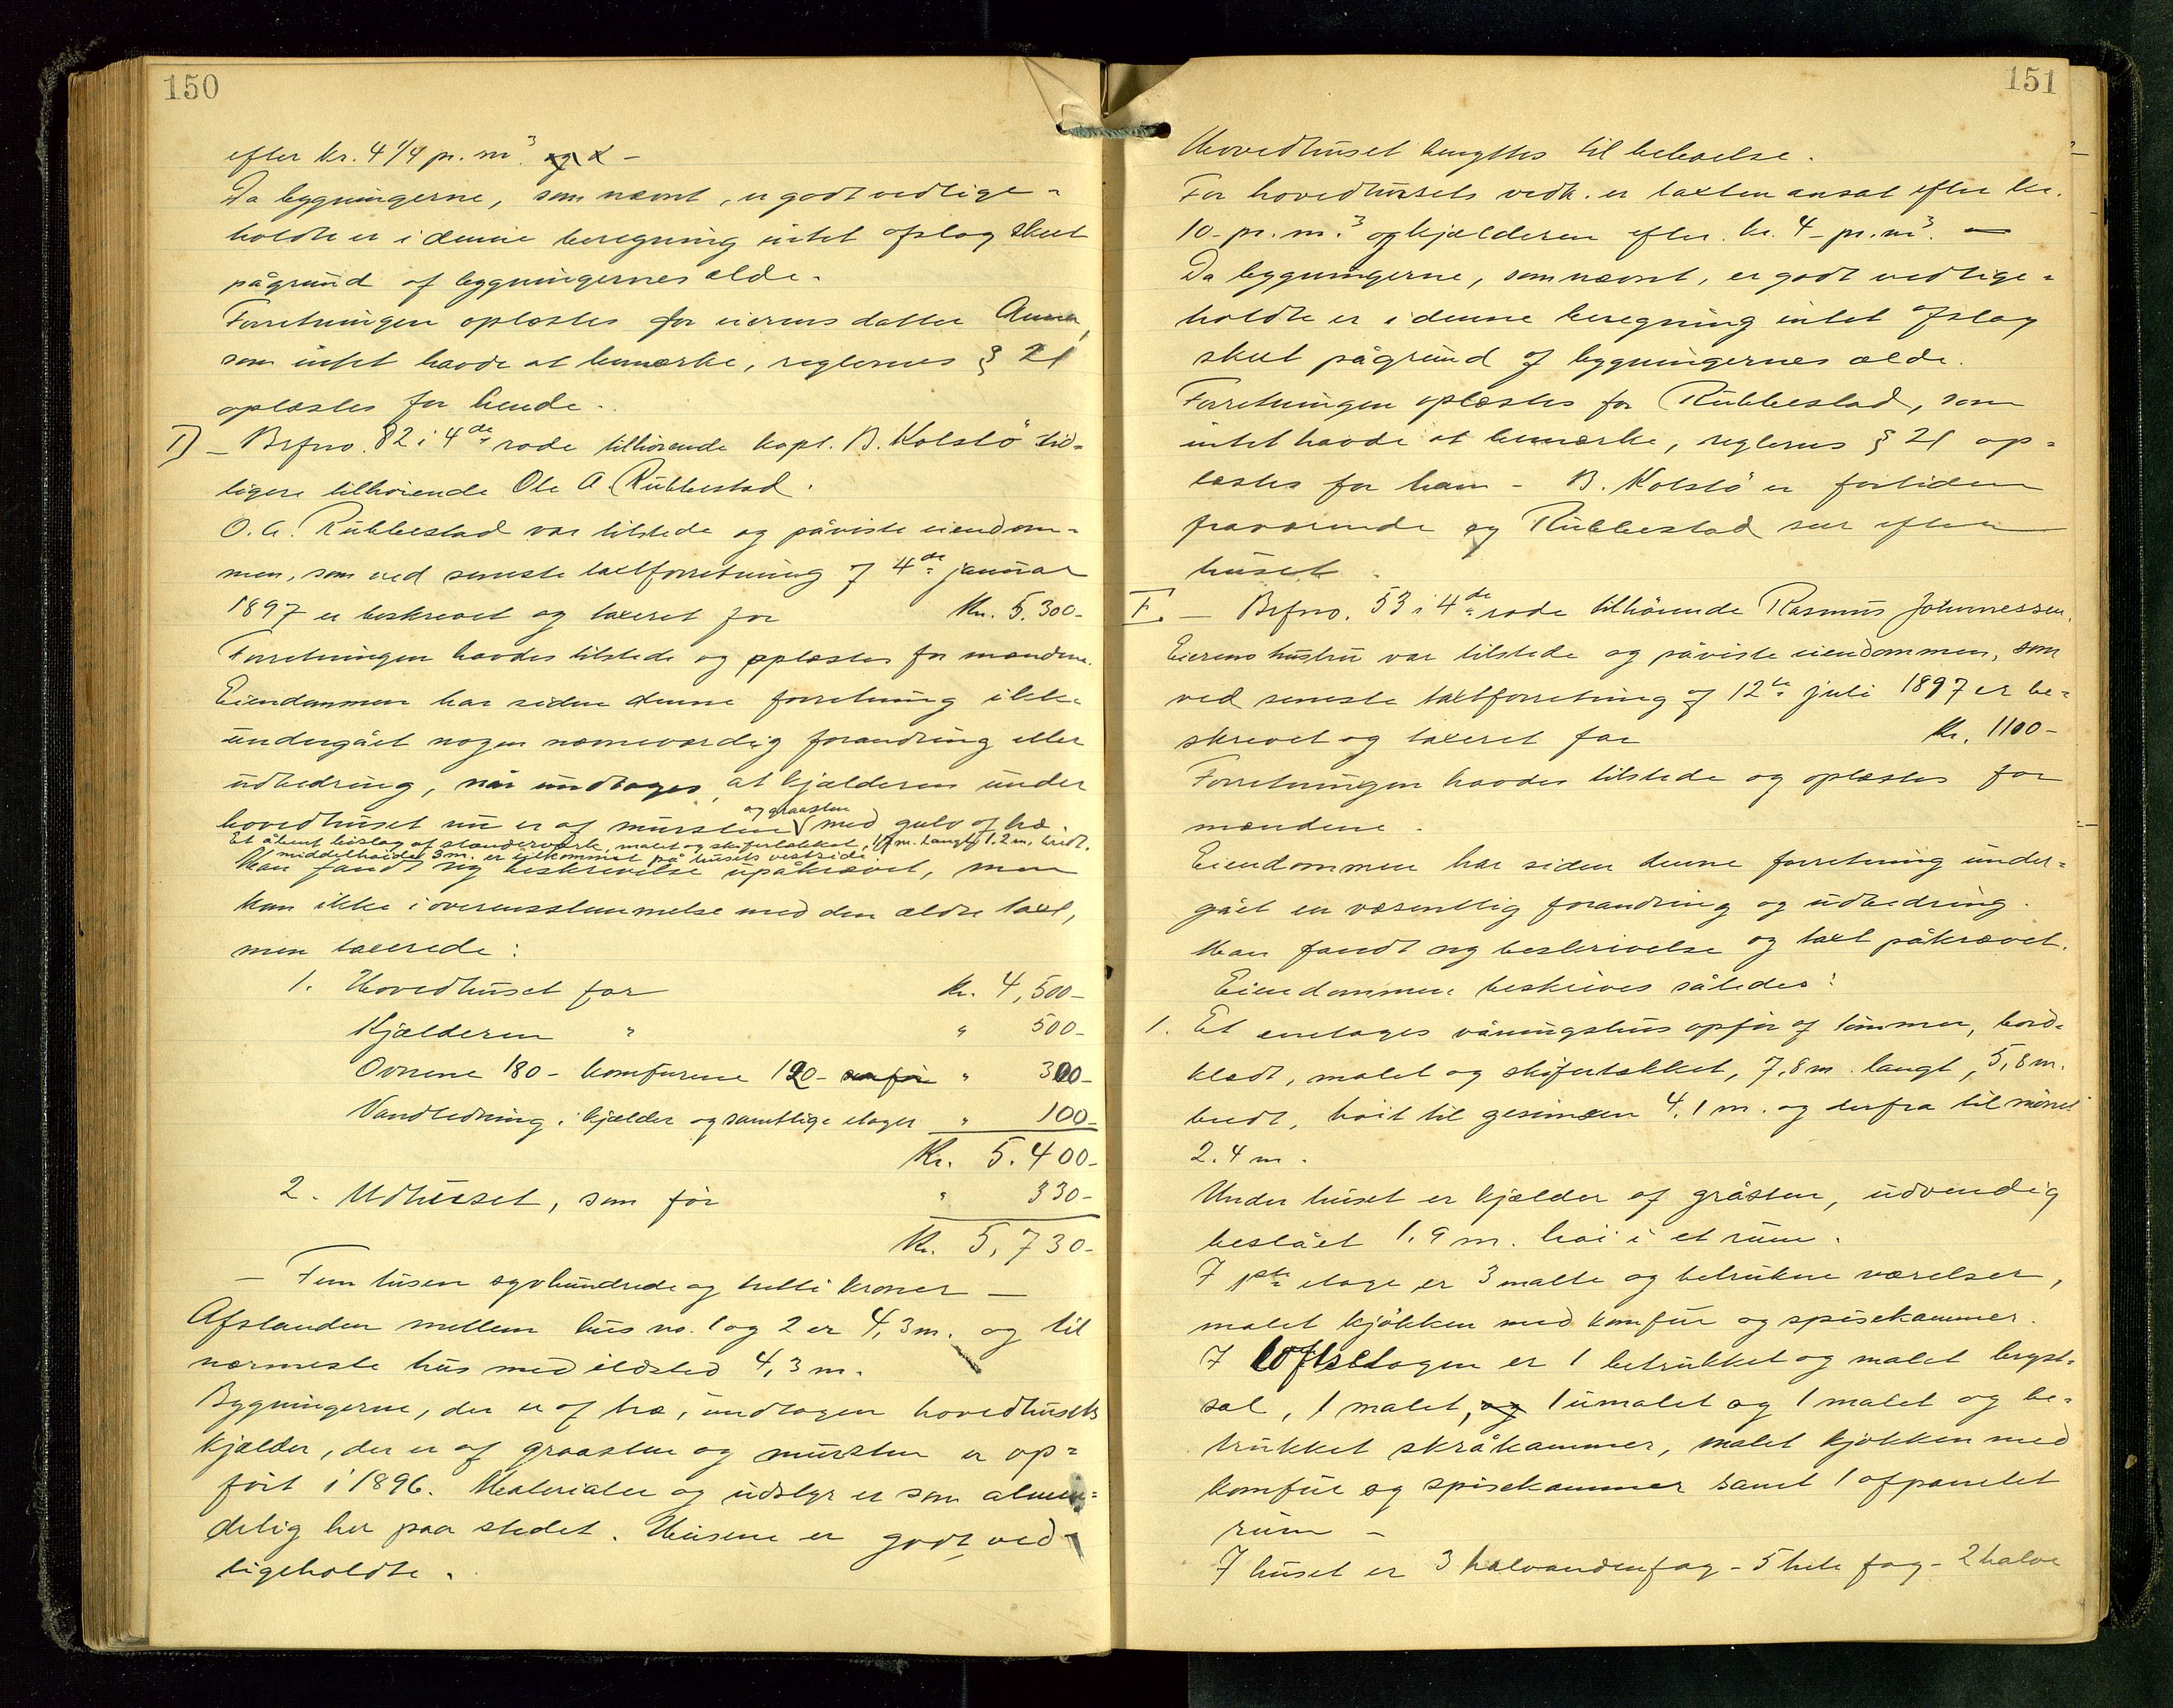 150
efter kr. 4 1/4 pr. m³. og
Da bygningerne, som nævnt, er godt vedlige=
holdte er i denne beregning intet afslag skeet
pågrund af bygningernes ælde.
Forretningen oplæstes for eierens datter Anna,
som intet havde at bemærke, reglernes § 21
oplæstes for hende.
Brfno. 82 i 4de rode tilhørende kapt. B. Kolstö tid=
ligere tilhørende Ole A. Rubbestad.
O. A. Rubbestad var tilstede og påviste eiendom=
men, som ved seneste taxtforretning af 4de januar
1897 er beskrevet og taxeret for Kr. 5.300-
Forretningen havdes tilstede og oplæstes for mændene.
Eiendommen har siden denne forretning ikke
undergået nogen nævneværdig forandring eller
udbedring, når undtages, at kjælderen under
og graasten
hovedhuset nu er af mursten med gulv af træ.
Et åbent bislag af stænderværk, malet og skifertækket, langt, 1.2 m. bredt,
middelhøide 3 m. er tilkommet på husets vestside
Man fandt ny beskrivelse upåkrævet, men
kan ikke i overensstemmelse med den ældre taxt,
men taxerede:
1. Hovedhuset for kr. 4,500-
Kjælderen " " 500-
Ovnene 180- komfurene 120- som før " 300-
Vandledning i kjælder og samtlige etager " 100-
Kr. 5.400-
2. Udhuset, som før " 330-
Kr. 5,730-
— Fem tusen syvhundrede og tretti kroner —
Afstanden mellem hus no. 1 og 2 er 4,3 m. og til
nærmeste hus med ildsted 4,3 m.
Bygningerne, der er af træ, undtagen hovedhusets
kjælder, der er af graasten og mursten er op=
ført i 1896. Materialer og udstyr er som almin=
delig her paa stedet. Husene er godt ved
ligeholdte.
151
Hovedhuset benyttes til beboelse.
For hovedhusets vedk. er taxten ansat efter kr.
10- pr. m.³ og kjælderen efter kr. 4- pr. m³. —
Da bygningerne, som nævnt, er godt vedlige=
holdte er i denne beregning intet afslag
skeet pågrund af bygningernes ælde.
Forretningen oplæstes for Rubbestad, som
intet havde at bemærke, reglernes § 21 op=
læstes for ham - B. Kolstö er fortiden
fraværende og Rubbestad ser efter
huset.
F. — Brfno. 53 i 4de rode tilhørende Rasmus Johannessen.
Eierens hustru var tilstede og påviste eiendommen, som
ved seneste taxtforretning af 12te juli 1897 er be=
skrevet og taxeret for Kr. 1100-
Forretningen havdes tilstede og oplæstes for
mændene.
Eiendommen har siden denne forretning under=
gået en væsentlig forandring og udbedring.
Man fandt ny beskrivelse og taxt påkrævet.
Eiendommen beskrives således:
1. Et enetages våningshus opført af tømmer, bord=
klædt, malet og skifertækket, 7,8 m. langt, 5,8 m.
bredt, høit til gesimsen 4.1 m. og derfra til mønet
2.4 m.
Under huset er kjælder af gråsten, udvendig
beslået 1.9 m. høi i et rum.
I 1ste etage er 3 malte og betrukne værelser,
malet kjökken med komfur og spisekammer.
I loftsetagen er 1 betrukket og malet bryst=
sal, 1 malet, og 1 umalet og 1 malet og be=
trukket skråkammer, malet kjökken med
komfur og spisekammer samt 1 afpanelet
rum -
I huset er 3 halvandenfag - 5 hele fag - 2 halve